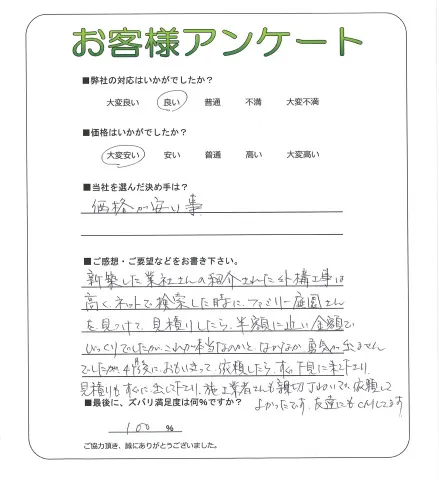 お客様アンケート
■弊社の対応はいかがでしたか？
大変良い 良い 普通 不満 大変不満
■価格はいかがでしたか？
大変安い 安い 普通 高い 大変高い
■当社を選んだ決め手は？
価格が安い事
■ご感想・ご要望などをお書き下さい。
新築した業社さんの紹介された外構工事は
高く、ネットで検索した時に、ファミリー庭園さん
を見つけて、見積りしたら、半額に近い金額で
びっくりでしたが、これが本当なのかと、なかなか勇気が出ません
でしたが、4月後に、おもいきって、依頼したら、すぐ下見に来て下さり、
見積りもすぐに出して下さり、施工業者さんも親切丁ねいで、依頼して
よかったです。友達にもCMしてます
■最後に、ズバリ満足度は何%ですか？
100 %
ご協力頂き、誠にありがとうございました。